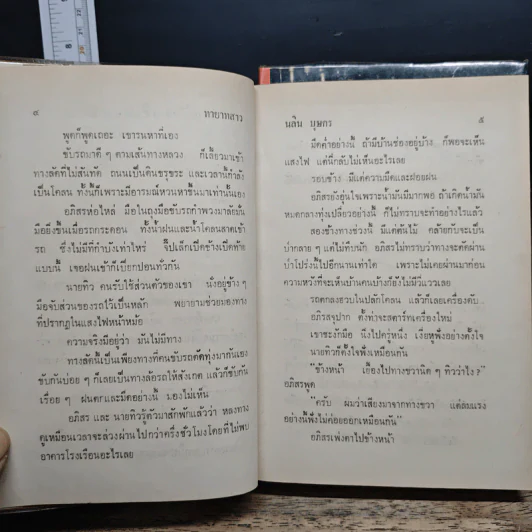 ๔ ทายาทสาว
พูดก็พูดเถอะ เขารนหาที่เอง
ขับรถมาดี ๆ ตามเส้นทางหลวง ก็เลี้ยวมาเข้า
ทางลัดที่ไม่สันทัด ถนนเป็นดินขรุขระ และเวลานี้กำลัง
เป็นโคลน ทั้งนี้ก็เพราะมีอารมณ์หวนหาขึ้นมาเท่านั้นเอง
อภิสรห่อไหล่ มือในถุงมือขับรถกำพวงมาลัยมั่น
เมื่อยิ่งขึ้นเมื่อรถกระดอน ทั้งน้ำฝนและน้ำโคลนสาดเข้า
รถ ซึ่งไม่มีที่กำบังเท่าไหร่ จี๊ปเล็กเปิดข้างเปิดท้าย
แบบนี้ เจอฝนเข้าก็เปียกปอนทั่วกัน
นายทิว คนรับใช้ส่วนตัวของเขา นั่งอยู่ข้าง ๆ
มือจับส่วนของรถไว้เป็นหลัก พยายามช่วยมองทาง
ที่ปรากฏในแสงไฟหน้าหม้อ
ความจริงมีอยู่ว่า มันไม่มีทาง
ทางลัดนี้เป็นเพียงทางที่คนขับรถตัดทุ่งมากันเอง
ขับกันบ่อย ๆ ก็เลยเป็นทางล้อรถให้สังเกต แล้วก็ขับกัน
เรื่อย ๆ ฝนตกและมืดอย่างนี้ มองไม่เห็น
อภิสร และ นายทิวรู้ตัวมาสักพักแล้วว่า หลงทาง
ดูเหมือนเวลาจะล่วงผ่านไปกว่าครึ่งชั่วโมงโดยที่ไม่พบ
อาคารโรงเรือนอะไรเลย
นลิน บุษกร ๕
มืดค่ำอย่างนี้ ถ้ามีบ้านช่องอยู่บ้าง ก็พอจะเห็น
แสงไฟ แต่นี่กลับไม่เห็นอะไรเลย
รอบข้าง มีแต่ความมืดและฝอยฝน
อภิสรยังอุ่นใจเพราะน้ำมันมีมากพอ ถ้าเกิดน้ำมัน
หมดกลางทุ่งเปลี่ยวอย่างนี้ ก็ไม่ทราบจะทำอย่างไรแล้ว
สองข้างทางช่วงนี้ มีแต่ต้นไม้ คล้ายกับจะเป็น
ป่ากลาย ๆ แต่ไม่ทึบนัก อภิสรไม่ทราบว่าทางจะตัดผ่าน
ป่าโปร่งนี้ไปอีกนานเท่าใด เพราะไม่เคยผ่านมาก่อน
ความหวังที่จะเห็นบ้านคนบ้างก็ยังไม่มีวี่แววเลย
รถตกลงฮวบในปลักโคลน แล้วก็เลยเครื่องดับ
อภิสรจุปาก ตั้งท่าจะสตาร์ทเครื่องใหม่
เขาชะงักมือ นิ่งไปครู่หนึ่ง เงี่ยหูฟังอย่างตั้งใจ
นายทิวก็ตั้งใจฟังเหมือนกัน
"ข้างหน้า เยื้องไปทางขวานิด ๆ ทิวว่าไง?"
อภิสรพูด
"ครับ ผมว่าเสียงมาจากทางขวา แต่ลมแรง
อย่างนี้ฟังไม่ค่อยออกเหมือนกัน"
อภิสรเพ่งตาไปข้างหน้า